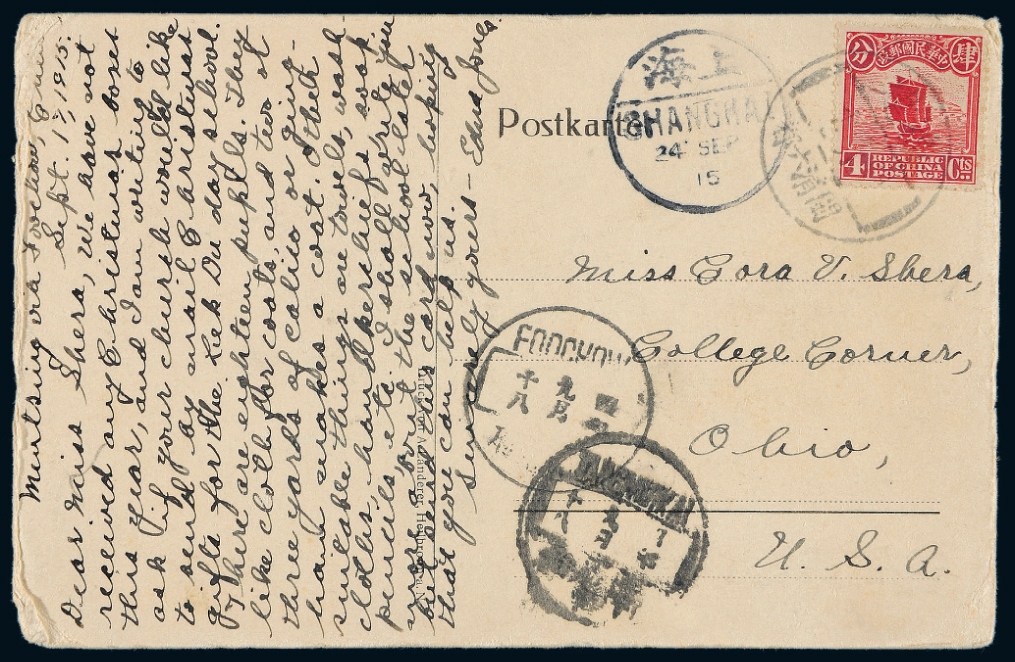 Mintsing via Foochow, China
Sept. 17, 1915.
Dear Miss Shera, We have not
received any Christmas boxes
this year, and I am writing to
ask if your church would like
to send by mail Christmas
gifts for the Lek Du day school.
There are eighteen pupils. They
like cloth for coats, and two or
three yards of calico or ging-
ham makes a coat. Other
suitable things are towels, wash
cloths, handkerchiefs, soap
pencils, etc. I shall write you
more about the school later
but send this card now, hoping
that you can help us.
Sincerely yours — Edna Jones.
Postkarte
上海
SHANGHAI
24 SEP
15
中華民國郵政
分
肆
4
REPUBLIC
OF CHINA
POSTAGE
Cts
Miss Cora V. Shera,
College Corner,
Ohio,
U. S. A.
FOOCHOW
四
九月
十八
九
月
十八